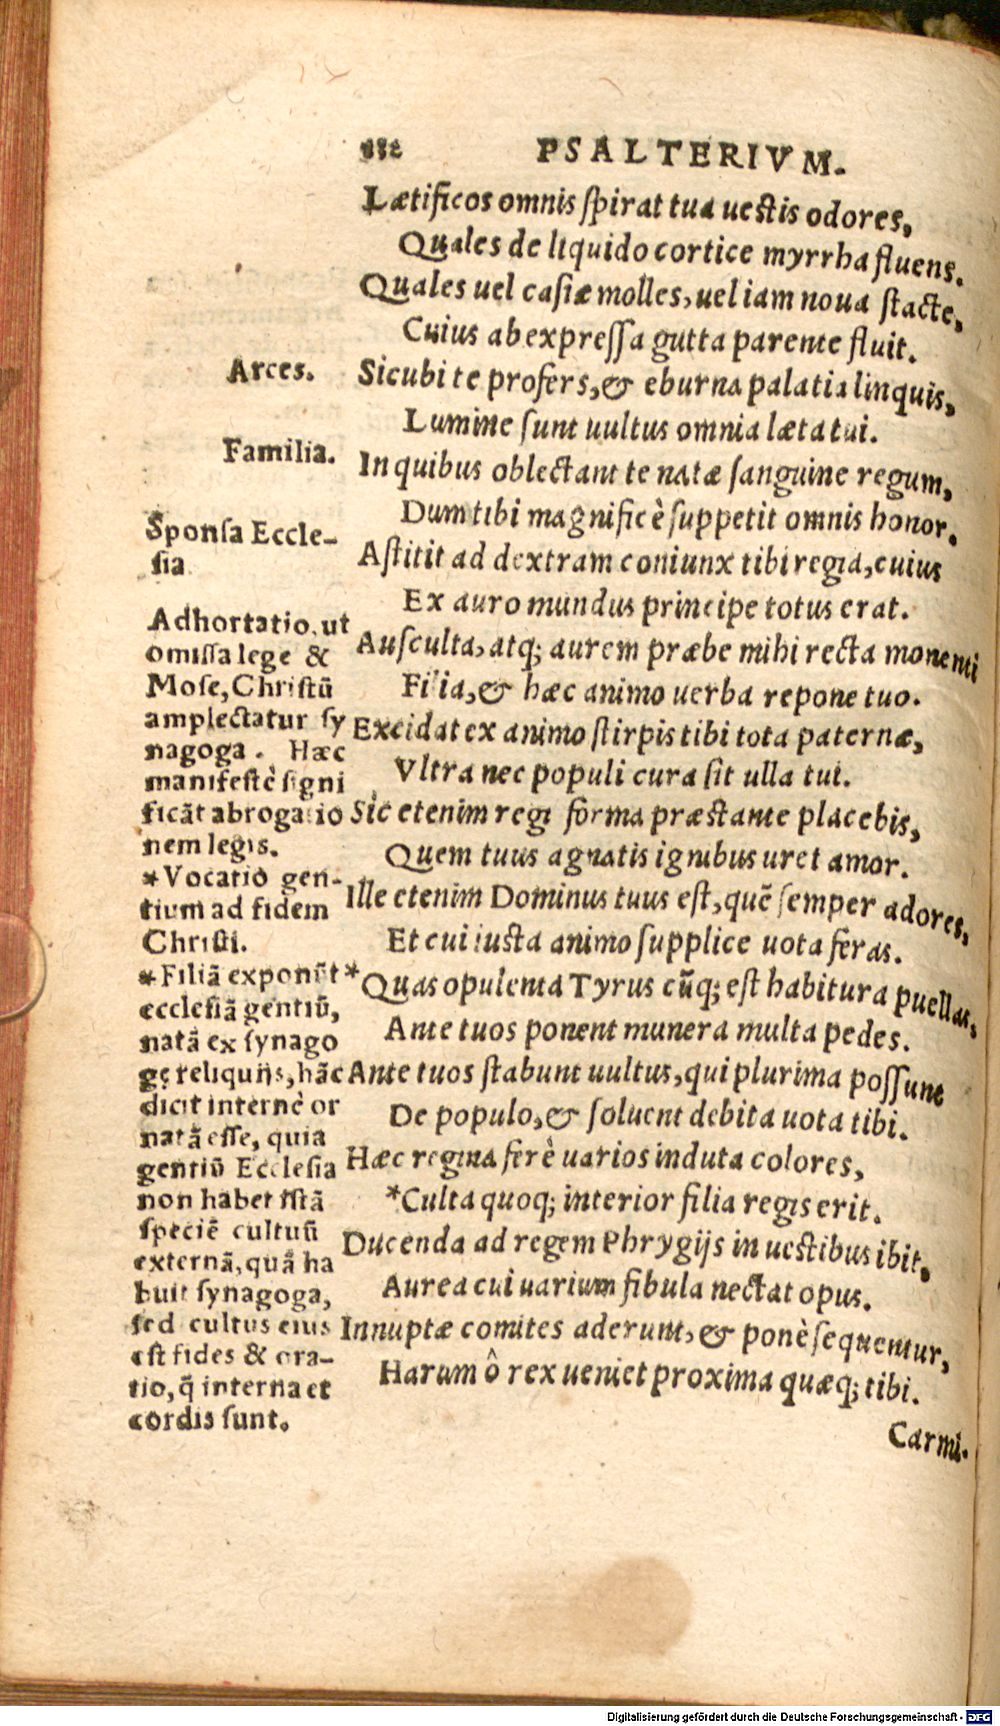 PSALTERIVM.
Lætificos omnis spirat tua uestis odores,
Quales de liquido cortice myrrha fluens.
Quales uel casiæ molles, uel iam noua stacte,
Cuius ab expressa gutta parente fluit.
Arces.
Sicubi te profers, & eburna palatia linquis,
Lumine sunt uultus omnia læta tui.
Familia.
In quibus oblectant te natæ sanguine regum,
Dum tibi magnificè suppetit omnis honor.
Sponsa Eccle-
sia
Astitit ad dextram coniunx tibi regia, cuius
Ex auro mundus principe totus erat.
Ausculta, atq; aurem præbe mihi recta monenti
Filia, & hæc animo uerba repone tuo.
Excidat ex animo stirpis tibi tota paternæ,
Vltra nec populi cura sit ulla tui.
Sic etenim regi forma præstante placebis,
Quem tuus agnatis ignibus uret amor.
Ille etenim Dominus tuus est, quē semper adores,
Et cui iusta animo supplice uota feras.
*Quas opulenta Tyrus cūq; est habitura puellas,
Ante tuos ponent munera multa pedes.
Ante tuos stabunt uultus, qui plurima possunt
De populo, & soluent debita uota tibi.
Hæc regina ferè uarios induta colores,
*Culta quoq; interior filia regis erit.
Ducenda ad regem Phrygijs in uestibus ibit,
Aurea cui uarium fibula nectat opus.
Innuptæ comites aderunt, & ponè sequentur,
Harum ô rex ueniet proxima quæq; tibi.
Carmi-
Adhortatio, ut
omissa lege &
Mose, Christū
amplectatur sy
nagoga. Hæc
manifestè signi
ficāt abrogatio
nem legis.
*Vocatio gen-
tium ad fidem
Christi.
*Filiā exponūt
ecclesiā gentiū,
natā ex synago
gę reliquijs, hāc
dicit internè or
natā esse, quia
gentiū Ecclesia
non habet istā
speciē cultuū
externā, quā ha
buit synagoga,
sed cultus eius
est fides & ora-
tio, q̄ interna et
cordis sunt.
Digitalisierung gefördert durch die Deutsche Forschungsgemeinschaft - DFG